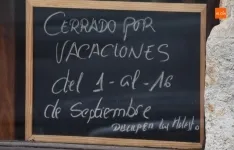 CERRADO POR
VACACIONES
del 1-al-16
de Septiembre
DISCULPEN las Molest.